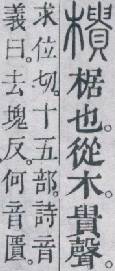 樻椐也。從木。貴聲。
求位切。十五部。詩音
義曰。去塊反。何音匱。